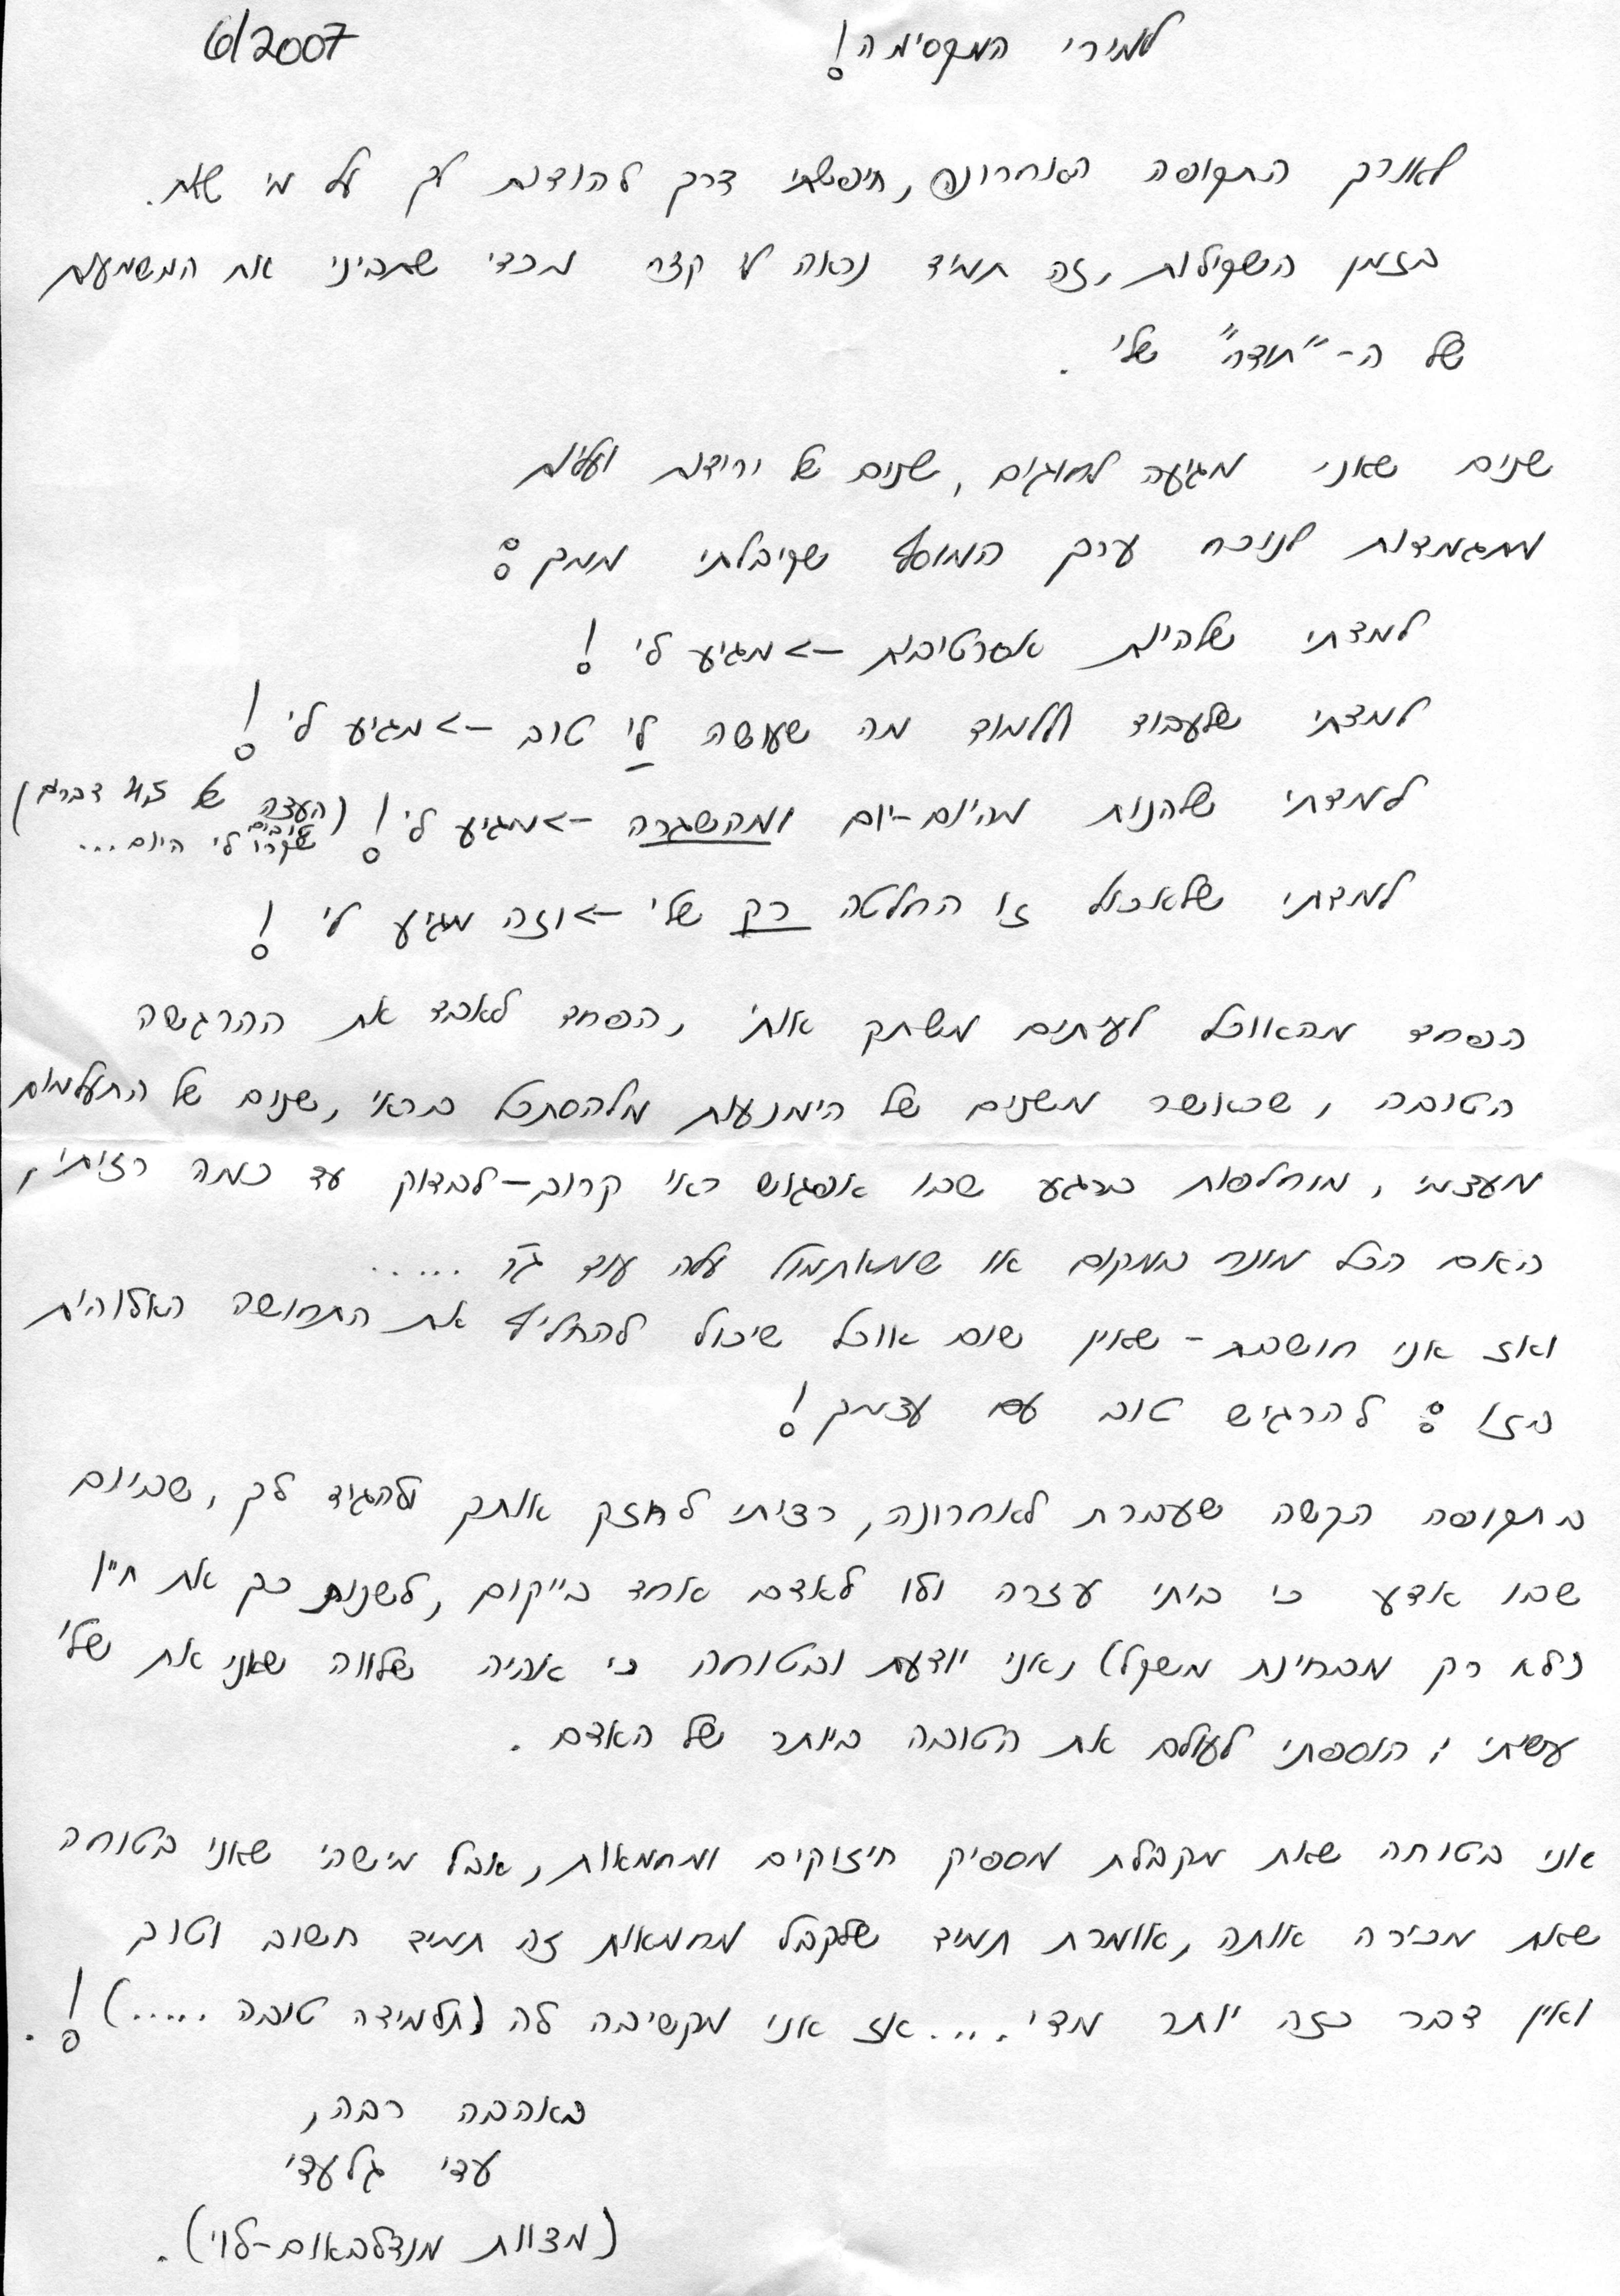 6/2007
למירי המקסימה!
לאורך התקופה האחרונה, חיפשתי דרך להודות לך על מי שאת.
בזמן השקילות, זה תמיד נראה לי קצר מכדי שתביני את המשמעות
של ה-"תודה" שלי.
שנים שאני מגיעה לחוגים, שנים של ירידות ועליות
מתגמדות לנוכח ערך המוסף שקיבלתי ממך:
למדתי שלהיות אסרטיבית -> מגיע לי!
למדתי שלעבוד וללמוד מה שעושה לי טוב -> מגיע לי!
למדתי שלהנות מהיום-יום ומהשגרה -> מגיע לי! (העצה של דברים
טובים שקרו לי היום...)
למדתי שלאכול זו החלטה רק שלי -> וזה מגיע לי!
הפחד מהאוכל לעיתים משתק אותי, הפחד לאבד את ההרגשה
הטובה, שכאשר משנים של הימנעות מלהסתכל בראי, שנים של התעלמות
מעצמי, מוחלפות ברגע שבו אפגוש ראי קרוב - לבדוק עד כמה רזיתי,
האם הכל מונח במקום או שמאתמול עלה עוד ג"ר .....
ואז אני חושבת - שאין שום אוכל שיכול להחליף את התחושה האלוהית
הזו: להרגיש טוב עם עצמך!
בתקופה הקשה שעברת לאחרונה, רציתי לחזק אותך ולהגיד לך, שביום
שבו אדע כי ביתי עזרה ולו לאדם אחד בייקום, לשנות כך את חייו
(לא רק מבחינת משקל) ואני יודעת ובטוחה כי אהיה שלווה שאני את שלי
עשיתי והוספתי לעולם את הטובה ביותר של האדם.
אני בטוחה שאת מקבלת מספיק חיזוקים ומחמאות, אבל מישהי שאני בטוחה
שאת מכירה אותה, אומרת תמיד שלקבל מחמאות זה תמיד חשוב וטוב
ואין דבר כזה יותר מדי..... אז אני מקשיבה לה (תלמידה טובה.....)!.
באהבה רבה,
עדי גלעדי
(מצוות מנדלבאום-לוי).